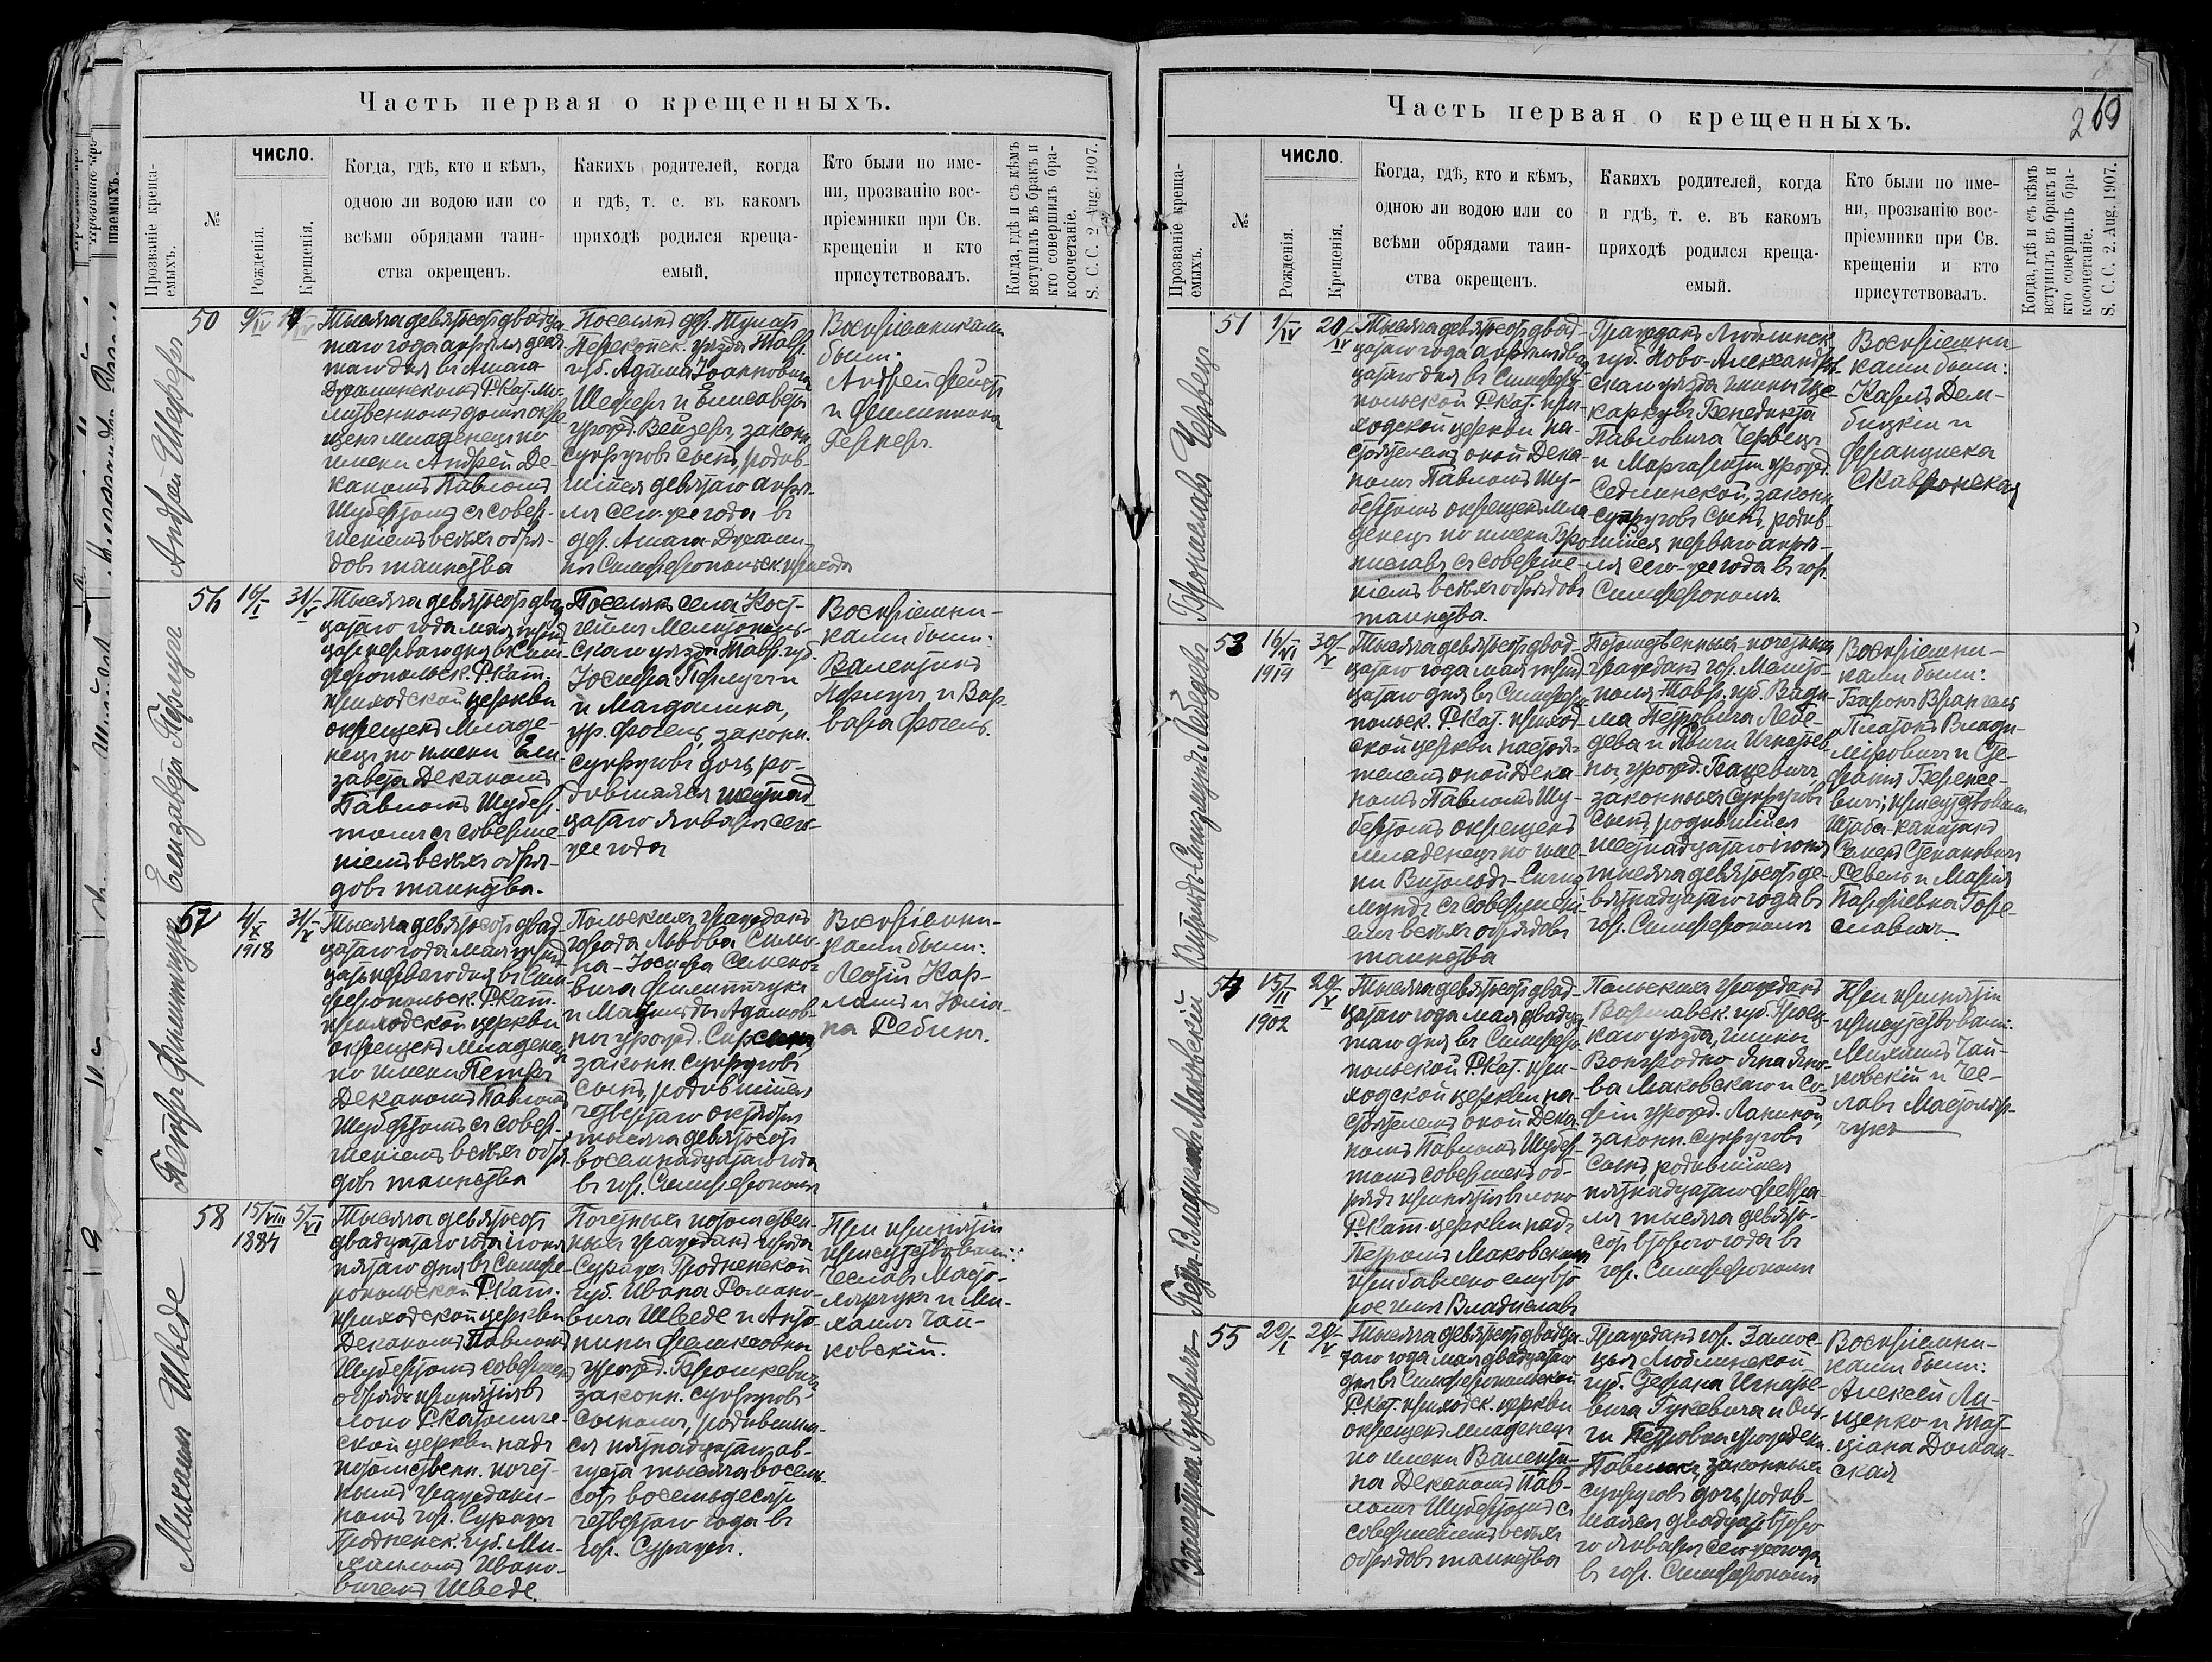 Часть первая о крещенныхъ.
Прозваніе креща-
емыхъ.
№
ЧИСЛО.
Рожденія.
Крещенія.
Когда, гдѣ, кто и кѣмъ,
одною ли водою или со
всѣми обрядами таин-
ства окрещенъ.
Какихъ родителей, когда
и гдѣ, т. е. въ какомъ
приходѣ родился креща-
емый.
Кто были по име-
ни, прозванію вос-
пріемники при Св.
крещеніи и кто
присутствовалъ.
Когда, гдѣ и съ кѣмъ
вступилъ въ бракъ и
кто совершилъ бра-
косочетаніе.
S. C. C. 2. Aug. 1907.
Андрей Шеферъ
50
9/IV
Тысяча девятьсот двадца-
таго года апрѣля
таго дня въ Атага
Р.Кат. Мо-
литвенномъ домѣ окре-
щенъ младенецъ по
имени Андрей Де-
каномъ Павломъ
Шубертомъ съ совер-
шеніемъ всѣхъ обря-
довъ таинства
Поселянъ дер.
Перекопск. уѣзда Тавр.
губ. Адама Іоанновича
Шеферъ и Елисаветы
урожд. Вейзеръ, законн.
супруговъ сынъ, родив-
шійся девятаго апрѣ-
ля сего-же года въ
дер. Атага
Симферопольск. прихода
Воспріемниками
были:
Андрей
и Филиппина
Гернеръ.
Елизавета Пфлугъ
56
16/I
31/V
Тысяча девятьсот двад
цатаго года мая трид
цать перваго дня въ Сим
феропольск. Р.Кат.
приходской церкви
окрещенъ младе-
нецъ по имени Ели-
завета Деканомъ
Павломъ Шубер-
томъ съ соверше-
ніемъ всѣхъ обря-
довъ таинства.
Поселянъ села Кост-
гейма Мелитополь-
скаго уѣзда Тавр. губ.
Іосифа Пфлугъ и
и Магдалина,
ур. Фогель, законн.
супруговъ дочь, ро-
дившаяся шестнад-
цатаго января сего-
же года
Воспріемни-
ками были:
Валентинъ
Пфлугъ и Вар-
вара Фогель.
Петръ Филипчукъ
57
4/X
1918
31/V
Тысяча девятьсот двад-
цатаго года мая трид
цать перваго дня въ Сим-
феропольск. Р.Кат.
приходской церкви
окрещенъ младенец
по имени Петръ
Деканомъ Павломъ
Шубертомъ съ совер-
шеніемъ всѣхъ обря-
довъ таинства
Польскихъ гражданъ
города Львова Симо-
на-Іосифа Семено-
вича Филипчука
и Матильды Адамов-
ны урожд.
законн. супруговъ
сынъ, родившійся
четвертаго октября
тысяча девятьсот
восемнадцатаго года
въ гор. Симферополѣ
Воспріемни-
ками были:
Леонъ Кар-
и Юліа-
на Ребинъ.
Михаилъ Шведе
58
15/VIII
1884
5/VI
Тысяча девятьсот
двадцатаго года іюня
пятаго дня въ Симфе-
ропольской Р.Кат.
приходской церкви
Деканомъ Павломъ
Шубертомъ совершенъ
обрядъ принятія въ
лоно Р.Католиче-
ской церкви надъ
потомственн. почет-
нымъ граждани-
номъ гор. Суража
Гродненск. губ. Ми-
хаиломъ Ивано-
вичемъ Шведе.
Почетныхъ потомствен-
ныхъ гражданъ города
Суража Гродненской
губ. Ивана Романо-
вича Шведе и Анто-
нины Феликсовны
урожд. Брошкевичъ
законн. супруговъ
сыномъ, родившим-
ся пятнадцатаго ав-
густа тысяча восемь-
сотъ восемьдесятъ
четвертаго года въ
гор. Суражѣ.
При принятіи
присутствовали:
Чеславъ Масто-
лярчукъ и Ми-
хаилъ Чай-
ковскій.
Часть первая о крещенныхъ.
269
Прозваніе креща-
емыхъ.
№
ЧИСЛО.
Рожденія.
Крещенія.
Когда, гдѣ, кто и кѣмъ,
одною ли водою или со
всѣми обрядами таин-
ства окрещенъ.
Какихъ родителей, когда
и гдѣ, т. е. въ какомъ
приходѣ родился креща-
емый.
Кто были по име-
ни, прозванію вос-
пріемники при Св.
крещеніи и кто
присутствовалъ.
Когда, гдѣ и съ кѣмъ
вступилъ въ бракъ и
кто совершилъ бра-
косочетаніе.
S. C. C. 2. Aug. 1907.
Брониславъ Червецъ
51
1/IV
20/IV
Тысяча девятьсот двад-
цатаго года апрѣля два
цатаго дня въ Симферо-
польской Р.Кат. при-
ходской церкви на-
стоятелемъ оной Дека-
номъ Павломъ Шу-
бертомъ окрещенъ мла
денецъ по имени Бро
ниславъ съ соверше-
ніемъ всѣхъ обрядовъ
таинства.
Гражданъ Люблинск.
губ. Ново-Александрій-
скаго уѣзда гмины Ще-
карковъ Бенедикта
Павловича Червецъ
и Маргариты урожд.
Седлинской, законн.
супруговъ сынъ, родив-
шійся перваго апрѣ-
ля сего-же года въ гор.
Симферополѣ.
Воспріемни-
ками были:
Карлъ Дем-
бицкій и
Франциска
Скавронская
Витольдъ-Сигизмундъ Лебедевъ
53
16/VI
1919
30/V
Тысяча девятьсот двад-
цатаго года мая трид-
цатаго дня въ Симферо-
польск. Р.Кат. приход-
ской церкви настоя-
телемъ оной Дека-
номъ Павломъ Шу-
бертомъ окрещенъ
младенецъ по име-
ни Витольдъ-Сигиз
мундъ съ совершені-
емъ всѣхъ обрядовъ
таинства
Потомственныхъ почетных
гражданъ гор. Мелито-
поля Тавр. губ. Вади-
ма Петровича Лебе-
дева и Ядвиги Игнатьев
ны, урожд. Бацевичъ
законныхъ супруговъ
сынъ, родившійся
шестнадцатаго іюня
тысяча девятьсот де-
вятнадцатаго года въ
гор. Симферополѣ
Воспріемни-
ками были:
Баронъ Врангель
Платонъ Влади-
міровичъ и Сте-
фанія Беренсе-
вичъ; присутствовали
Штабсъ-капитанъ
Семенъ Степановичъ
Ревель и Марія
Парфіевна Горе-
славичъ.
Петръ-Владиславъ Маковскій
54
15/II
1902
20/V
Тысяча девятьсот двад-
цатаго года мая двадца
таго дня въ Симферо-
польской Р.Кат. при-
ходской церкви, на-
стоятелемъ оной Дека-
номъ Павломъ Шубер-
томъ совершенъ об-
рядъ принятія въ лоно
Р.Кат. церкви надъ
Петромъ Маковскимъ
прибавлено ему вто
рое имя Владиславъ
Польскихъ гражданъ
Варшавск. губ. Гроец-
каго уѣзда, гмины
Конгродно Яна Яно-
ва Маковскаго и Со-
фіи урожд. Ланиной,
законн. супруговъ
сынъ, родившійся
пятнадцатаго февра-
ля тысяча девять-
сот второго года въ
гор. Симферополѣ
При принятіи
присутствовали:
Михаилъ Чай-
ковскій и Чес-
лавъ Мастоляр-
чукъ
Валентина Гукевичъ
55
22/I
20/V
Тысяча девятьсот двадца-
таго года мая двадцатаго
дня въ Симферопольской
Р.Кат. приходск. церкви
окрещенъ младенецъ
по имени Валенти-
на Деканомъ Пав-
ломъ Шубертомъ съ
совершеніемъ всѣхъ
обрядовъ таинства
Гражданъ гор. Замос-
цья Люблинской
губ. Стефана Игнать-
евича Гукевича и Оль-
ги Петровны урожден.
законныхъ
супруговъ дочь, родив-
шаяся двадцать второ
го января сего-же года
въ гор. Симферополѣ
Воспріемни-
ками были:
Алексѣй Ли-
щенко и Тат-
ціана Доман-
ская